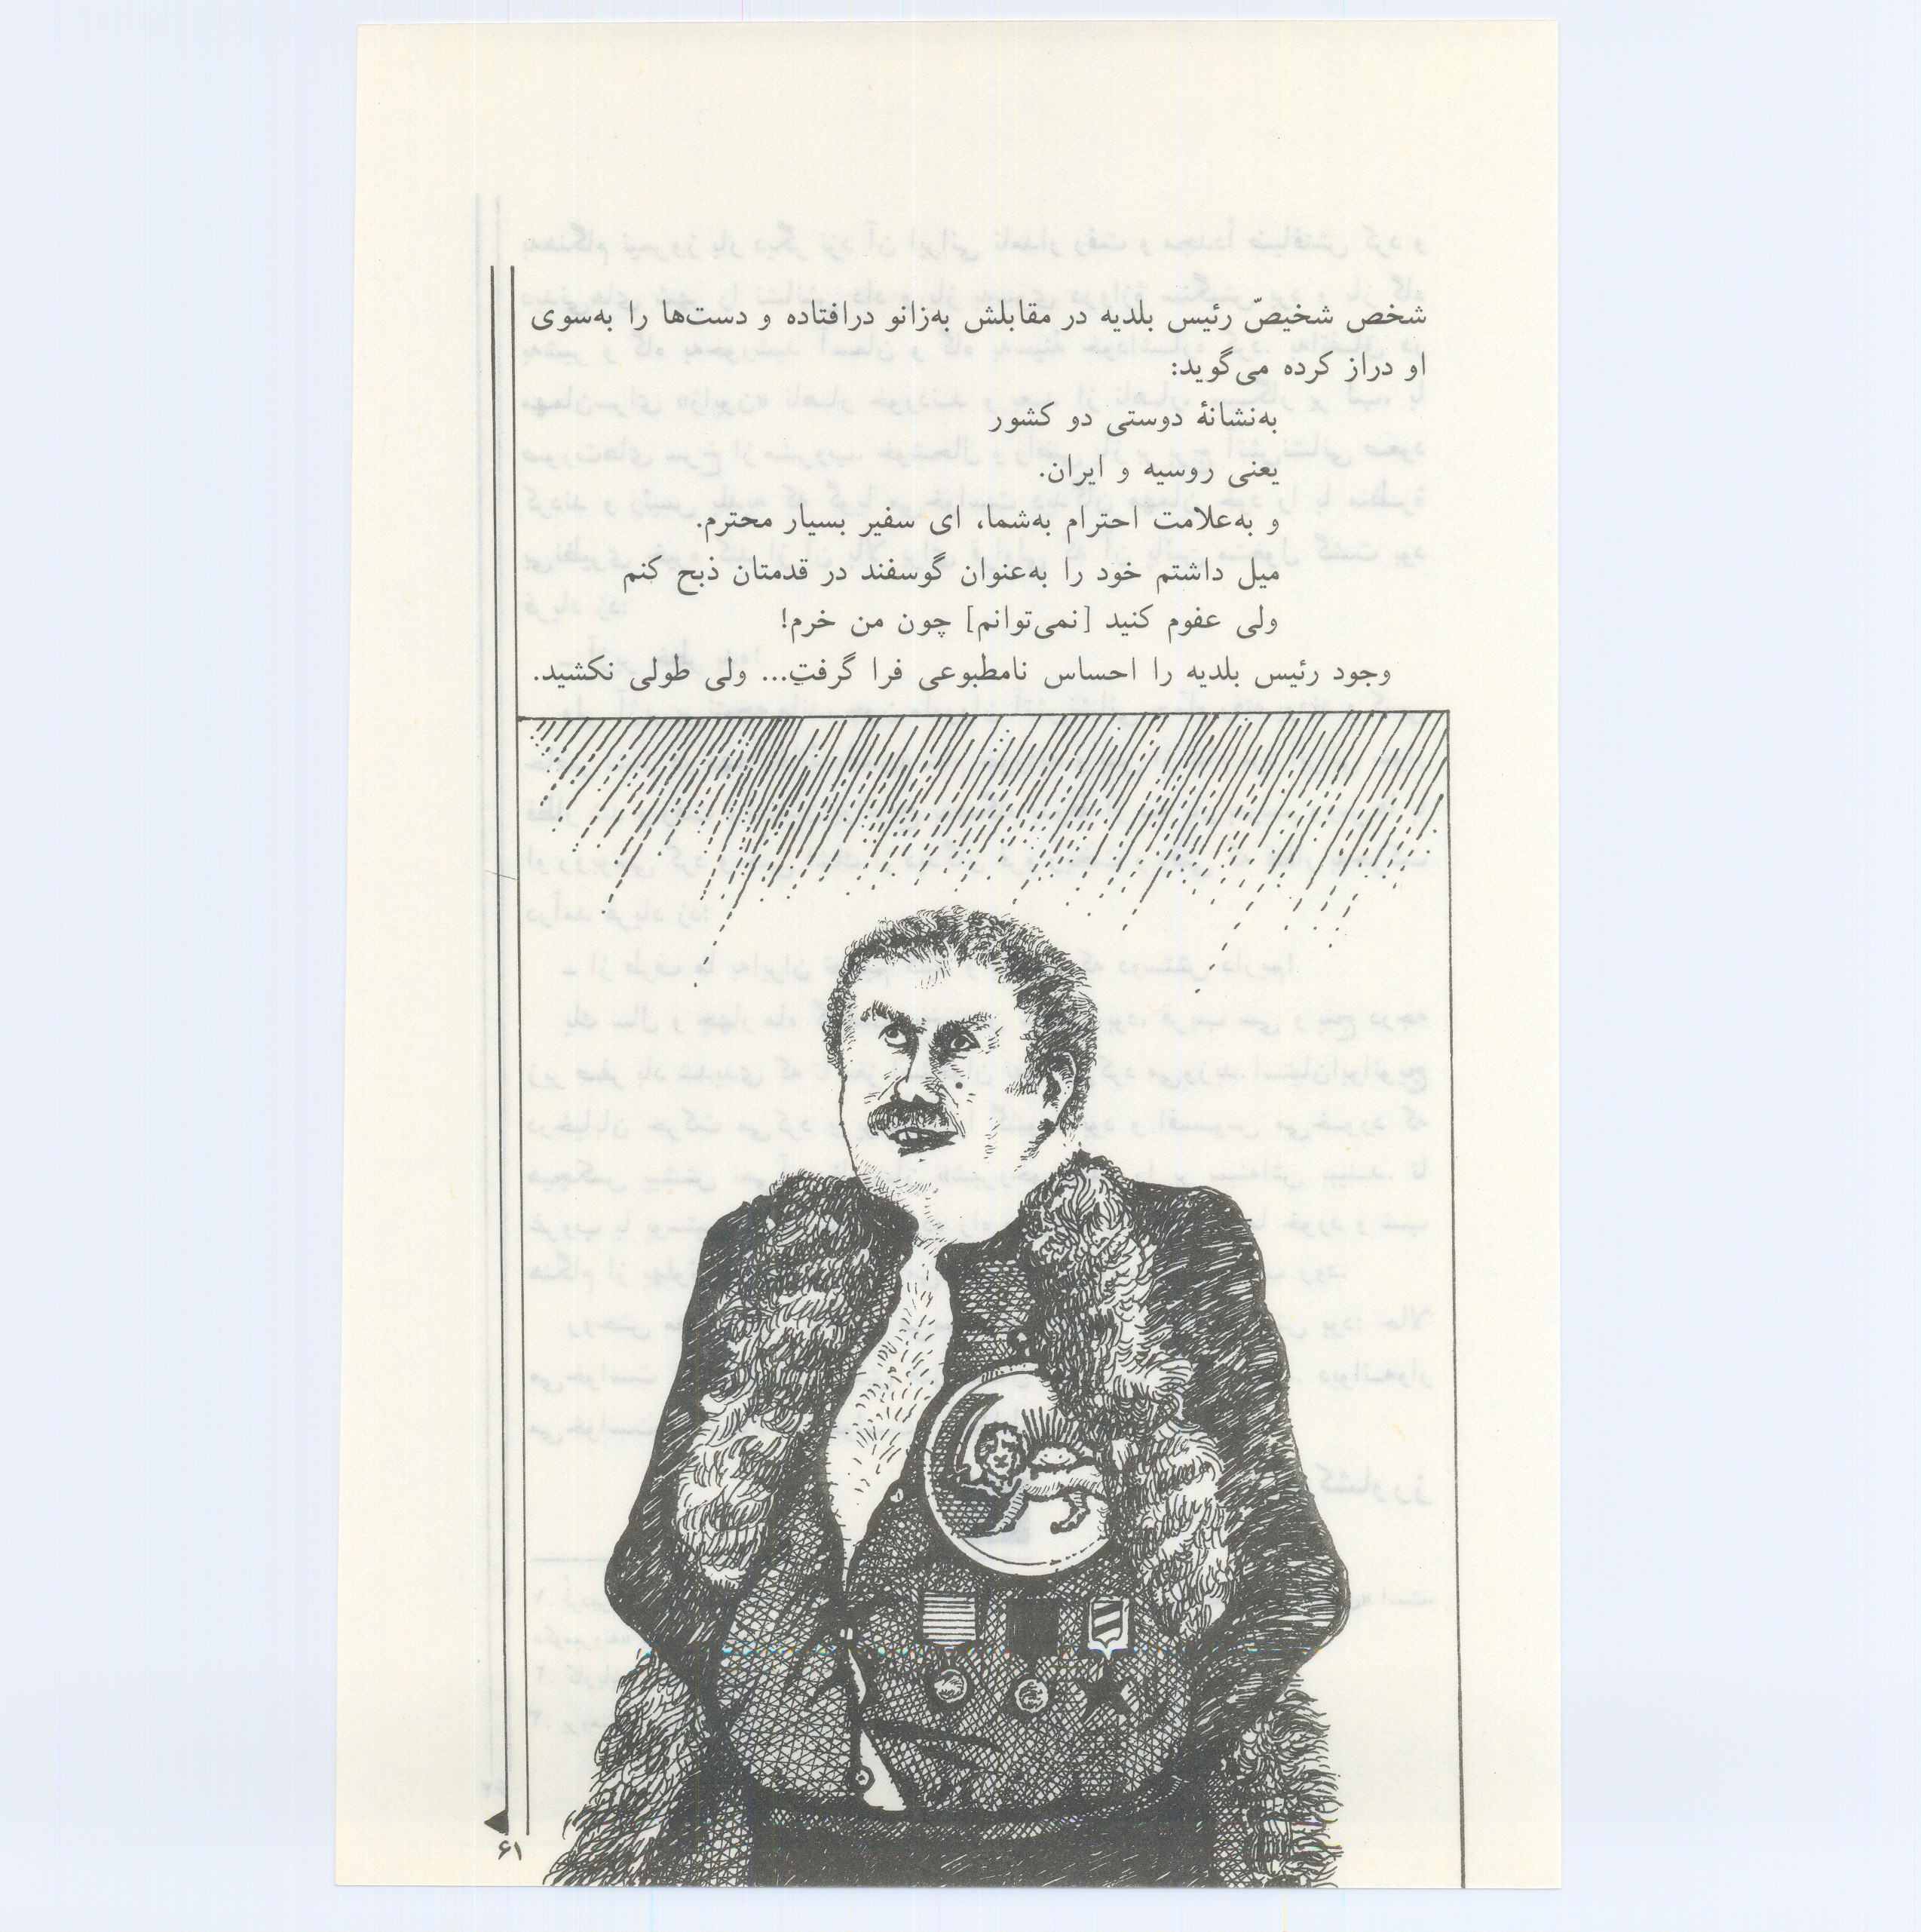 شخص شخیصّ رئیس بلدیه در مقابلش به‌زانو درافتاده و دست‌ها را به‌سوی
او دراز کرده می‌گوید:
به‌نشانهٔ دوستی دو کشور
یعنی روسیه و ایران.
و به‌علامت احترام به‌شما، ای سفیر بسیار محترم.
میل داشتم خود را به‌عنوان گوسفند در قدمتان ذبح کنم
ولی عفوم کنید [نمی‌توانم] چون من خرم!
وجود رئیس بلدیه را احساس نامطبوعی فرا گرفت... ولی طولی نکشید.
۶۱